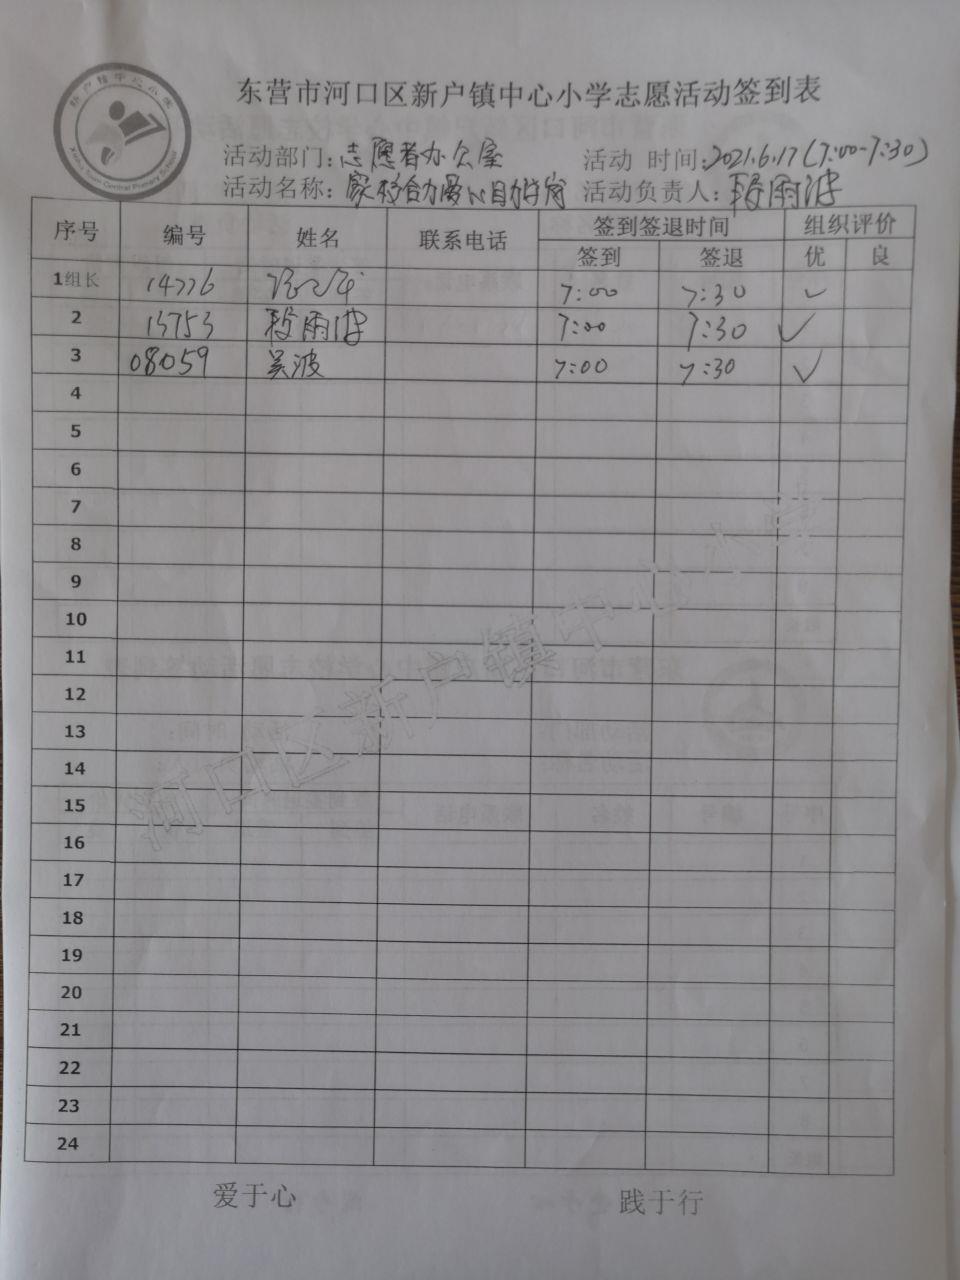 新户镇中心小学
Xinhu Town Central Primary School
东营市河口区新户镇中心小学志愿活动签到表
活动部门：志愿者办公室 活动 时间：2021.6.17(7:00-7:30)
活动名称：家校合力爱心护学岗 活动负责人：段雨波
序号 编号 姓名 联系电话 签到签退时间 组织评价
签到 签退 优 良
1组长 14776 7:00 7:30 ✓
2 13753 段雨波 7:00 7:30 ✓
3 08059 吴波 7:00 7:30 ✓
4
5
6
7
8
9
10
11
12
13
14
15
16
17
18
19
20
21
22
23
24
河口区新户镇中心小学
爱于心 践于行